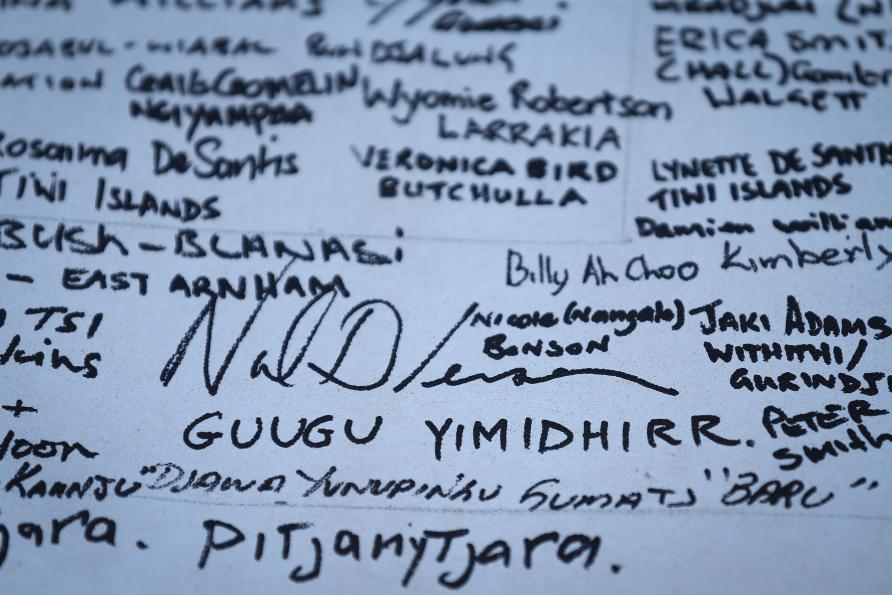 WILLIAMS
ERICA SMIT
BUNDJALUNG
(HALL) Gamil
CRAIG CROMELIN
NGIYAMPAA
WALGETT
Wyomie Robertson
LARRAKIA
Rosanna De Santis
TIWI ISLANDS
VERONICA BIRD
BUTCHULLA
LYNETTE DE SANTIS
TIWI ISLANDS
Damien William
BUSH - BLANASi
- EAST ARNHAM
Billy Ah Choo Kimberly
TSI
kins
Nicole (Nangala)
BENSON
JAKI ADAMS
WITHITHI/
GURINDJI
+
loon
GUUGU YIMIDHIRR.
PETER
Smith
KAANJU
"DJAWA YUNUPINGU GUMATJ "BARU"
jara. PITjanyTjara.